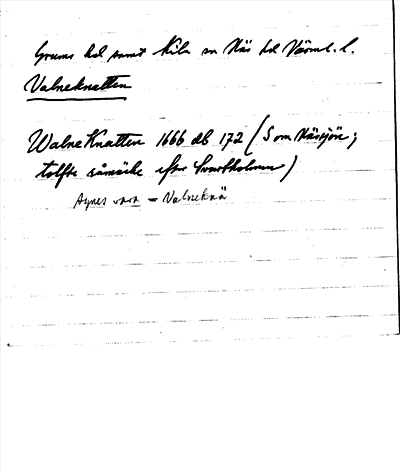 Grums hd samt Kila sn Näs hd Värml. l.
Valneknatten
WalneKnatten 1666 db 172 (S om Nässjön;
tolfte råmärke efter Svartholmen)
Agnes vara = Valneknä